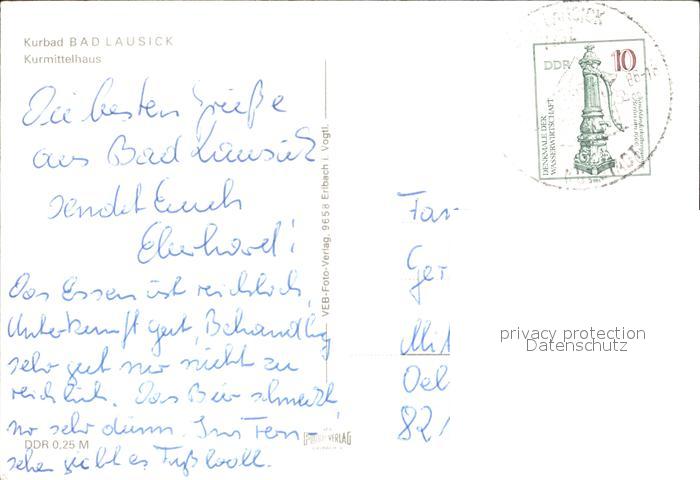 Kurbad BAD LAUSICK
Kurmittelhaus
Die besten Grüße
aus Bad Lausick
sendet Euch
Eberhard!
Das Essen ist reichlich,
Unterkunft gut, Behandlung
sehr gut nur nicht zu
reichlich. Das Bier schmeckt
nur sehr dünn. Im Fern-
sehen giebt es Fußball.
DDR 0,25 M
VEB-Foto-Verlag, 9658 Erlbach i. Vogtl.
VERLAG
LAUSICK
DDR 10
DENKMALE DER
WASSERWIRTSCHAFT
Fa
Ger
Mit
Oel
82
privacy protection
Datenschutz